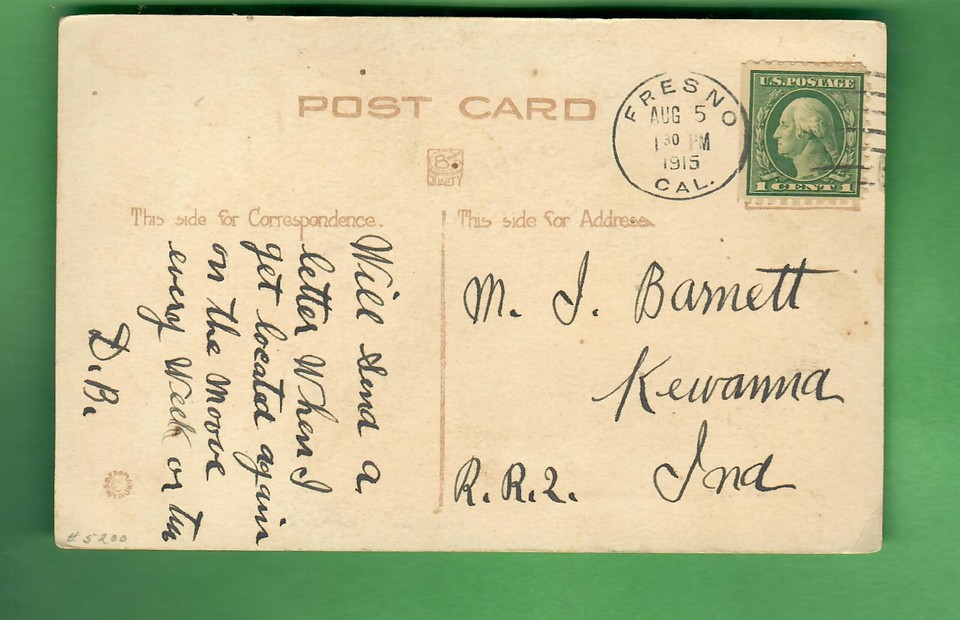 POST CARD
FRESNO
AUG 5
1 30 PM
1915
CAL.
U.S. POSTAGE
1 CENT 1
This side for Correspondence.
This side for Address.
Will Send a
letter When I
get located again
on the Moove
every Week or
D.B.
M. J. Barnett
Kewanna
Ind
R.R.2.
#5200